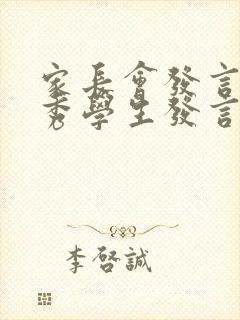 家長會發言
秀學生發言
李啓誠